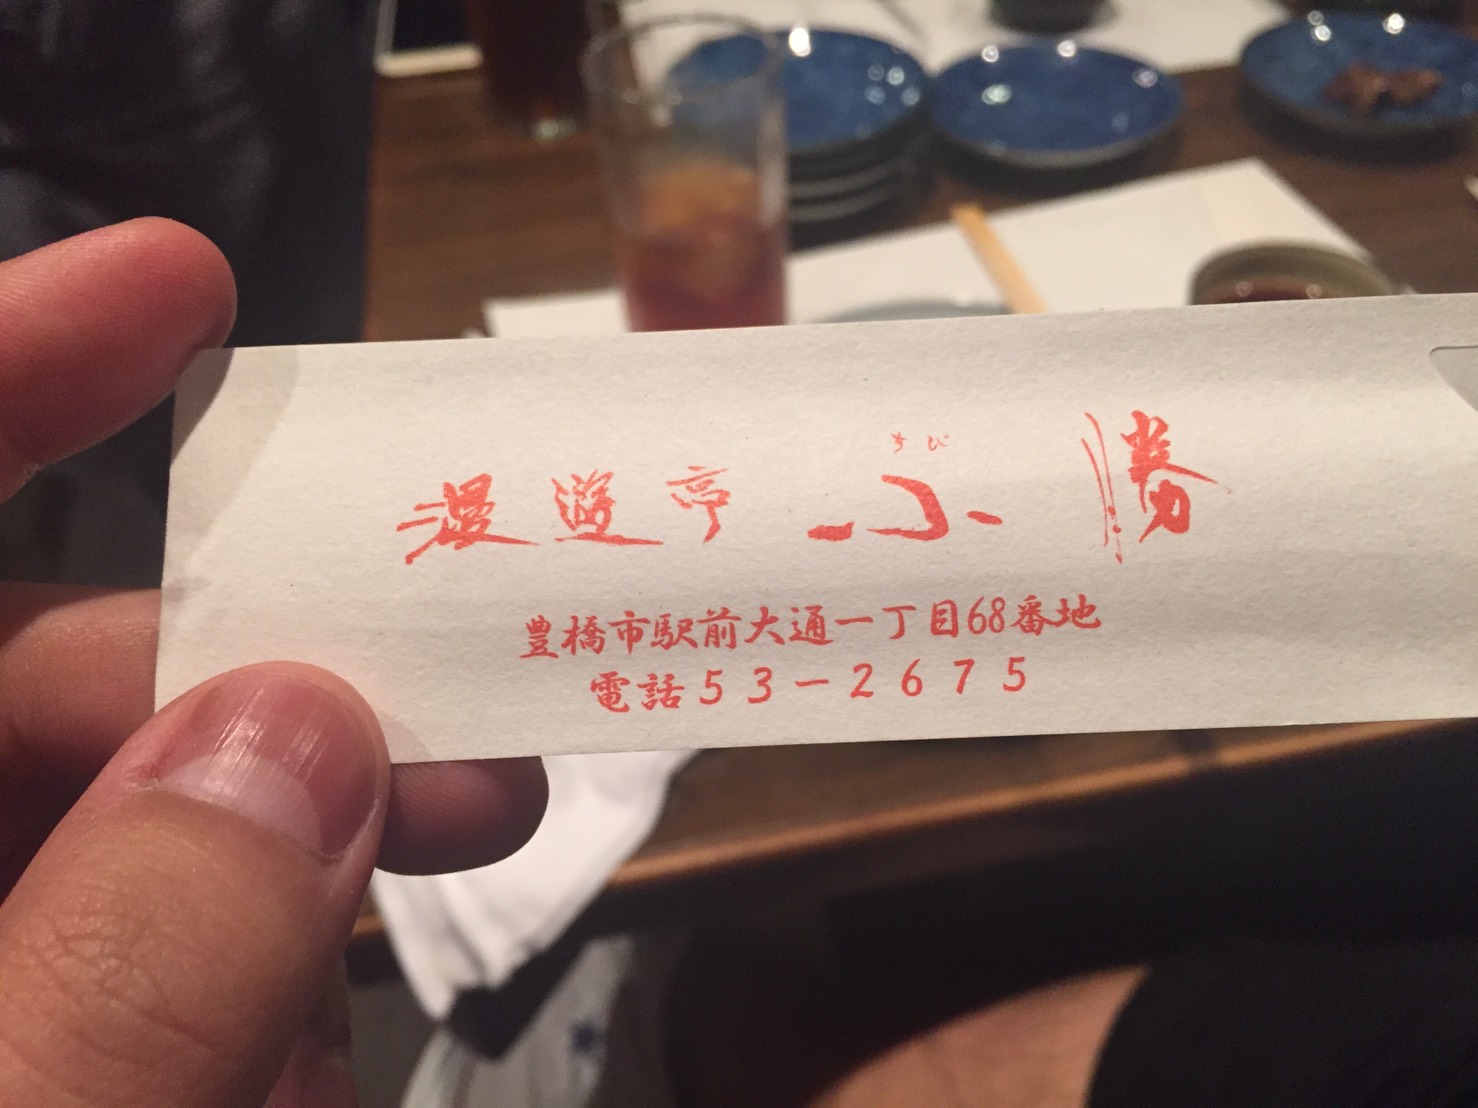 ちび
漫遊亭 小勝
豊橋市駅前大通一丁目68番地
電話53-2675